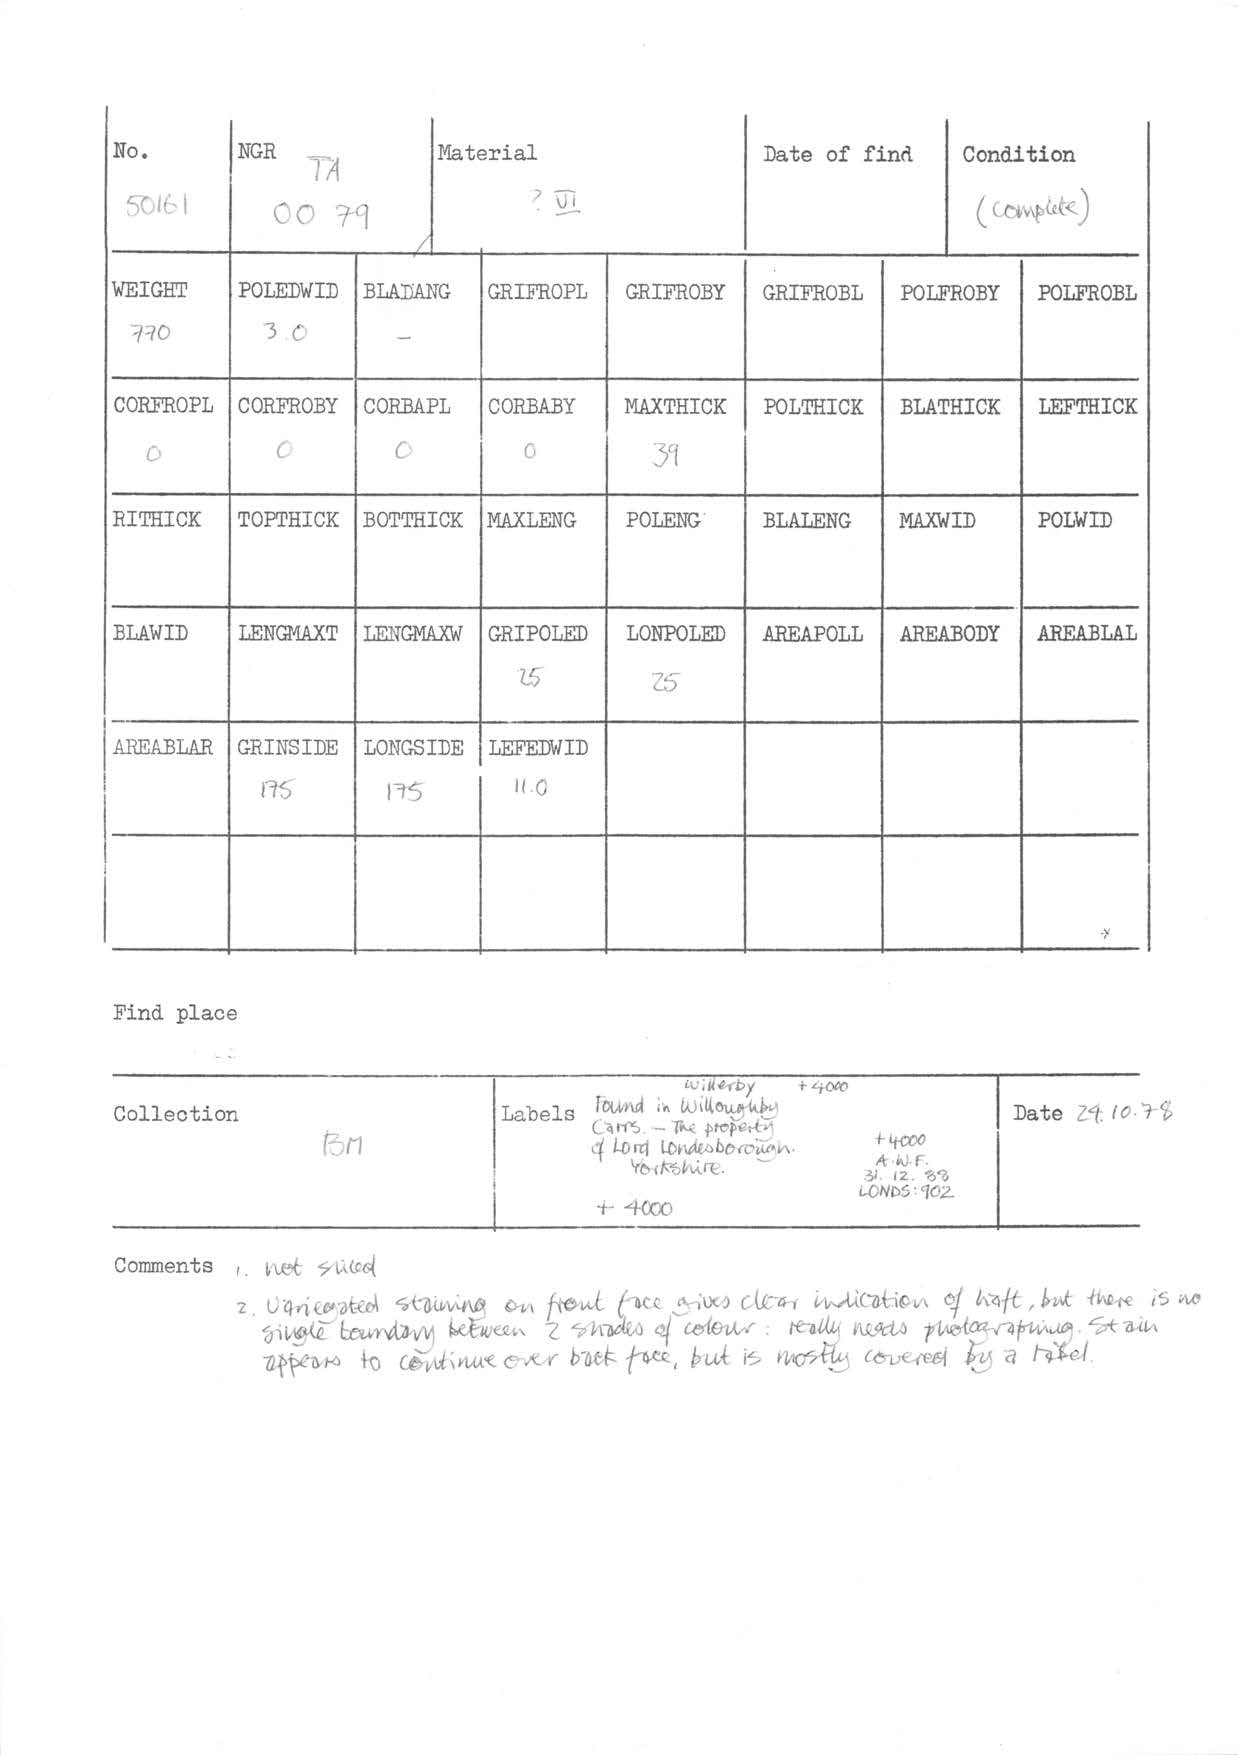 No. NGR Material Date of find Condition
TA
50161 00 79 ? VI (complete)
WEIGHT POLEDWID BLADANG GRIFROPL GRIFROBY GRIFROBL POLFROBY POLFROBL
770 3.0 –
CORFROPL CORFROBY CORBAPL CORBABY MAXTHICK POLTHICK BLATHICK LEFTHICK
0 0 0 0 39
RITHICK TOPTHICK BOTTHICK MAXLENG POLENG BLALENG MAXWID POLWID
BLAWID LENGMAXT LENGMAXW GRIPOLED LONPOLED AREAPOLL AREABODY AREABLAL
25 25
AREABLAR GRINSIDE LONGSIDE LEFEDWID
175 175 11.0
Find place
Collection
BM
Labels
Willerby +4000
Found in Willoughby
Carrs. – The property
of Lord Londesborough.
Yorkshire.
+ 4000
+4000
A.W.F.
31. 12. 88
LONDS: 902
Date 24.10.78
Comments 1. not sliced
2. Variegated staining on front face gives clear indication of haft, but there is no
single boundary between 2 shades of colour: really needs photographing. Stain
appears to continue over back face, but is mostly covered by a label.